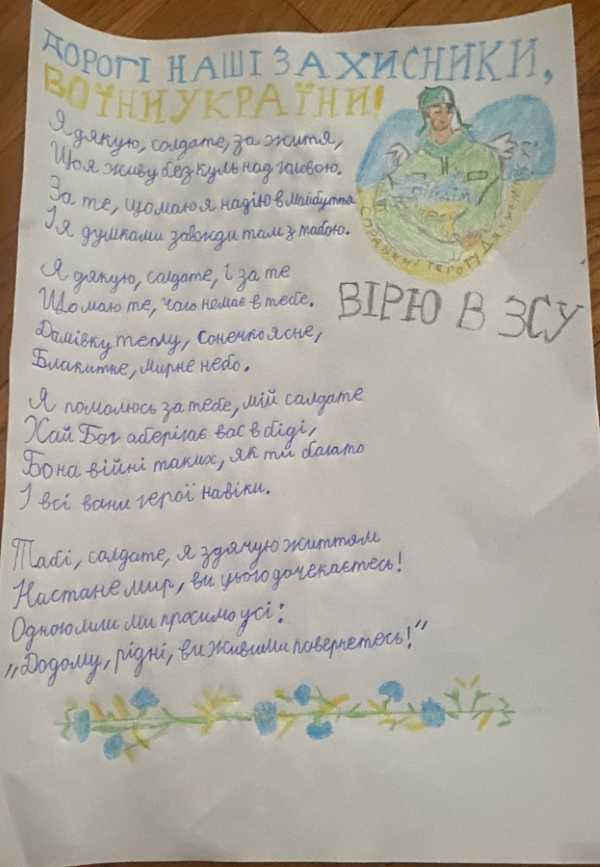 ДОРОГІ НАШІ ЗАХИСНИКИ,
ВОЇНИ УКРАЇНИ!
Я дякую, солдате, за життя,
Що я живу без куль над головою.
За те, що маю я надію в майбуття
І я думками завжди там з тобою.
Я дякую, солдате, і за те
Що маю те, чого немає в тебе.
Домівку теплу, сонечко ясне,
Блакитне, мирне небо.
Я помолюсь за тебе, мій солдате
Хай Бог оберігає вас в біді,
Бо на війні таких, як ти багато
І всі вони герої навіки.
Тобі, солдате, я здячую життям
Настане мир, ви цього дочекаєтесь!
Одною ми просимо усі:
„Додому, рідні, ви живими повернетесь!"
ГЕРОЇ
ВІРЮ В ЗСУ